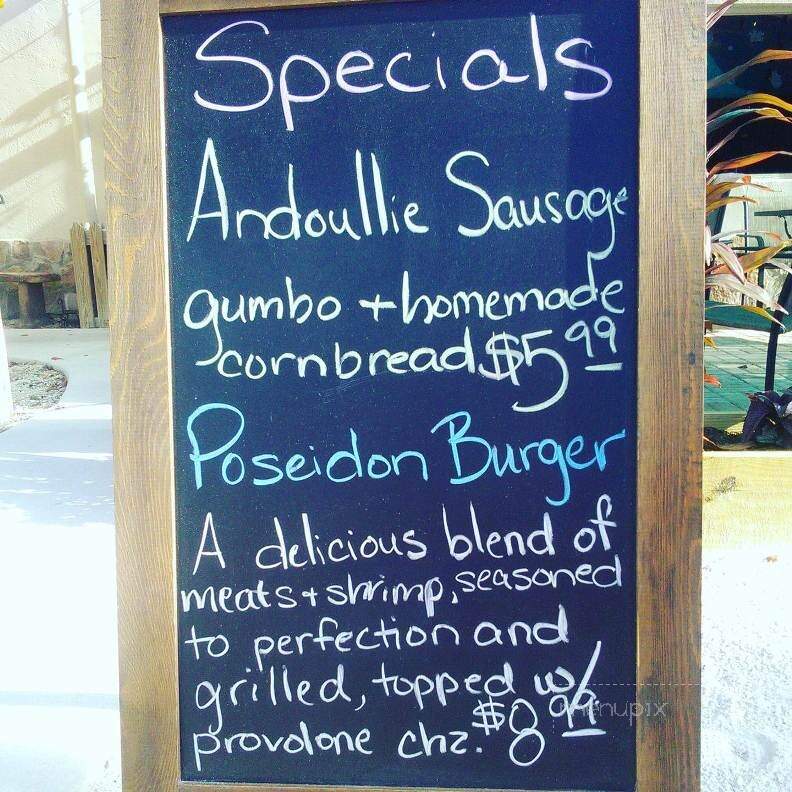 Specials
Andoullie Sausage
gumbo + homemade
cornbread $5 99
Poseidon Burger
A delicious blend of
meats + shrimp, seasoned
to perfection and
grilled, topped w/
provolone chz. $8 99
menupix